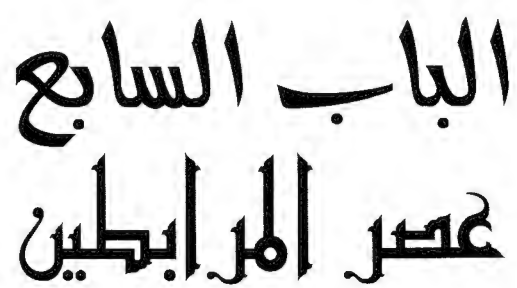 الباب السابع
عصر المرابطين